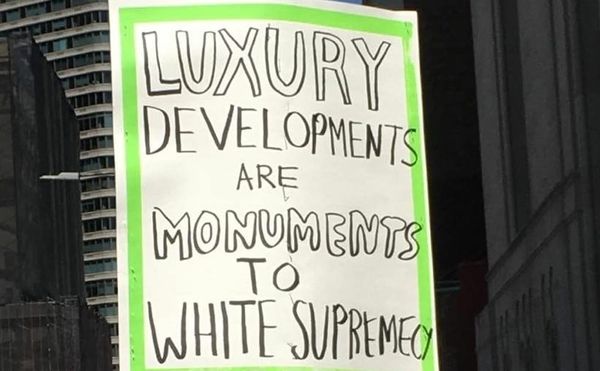 LUXURY
DEVELOPMENTS
ARE
MONUMENTS
TO
WHITE SUPREMECY